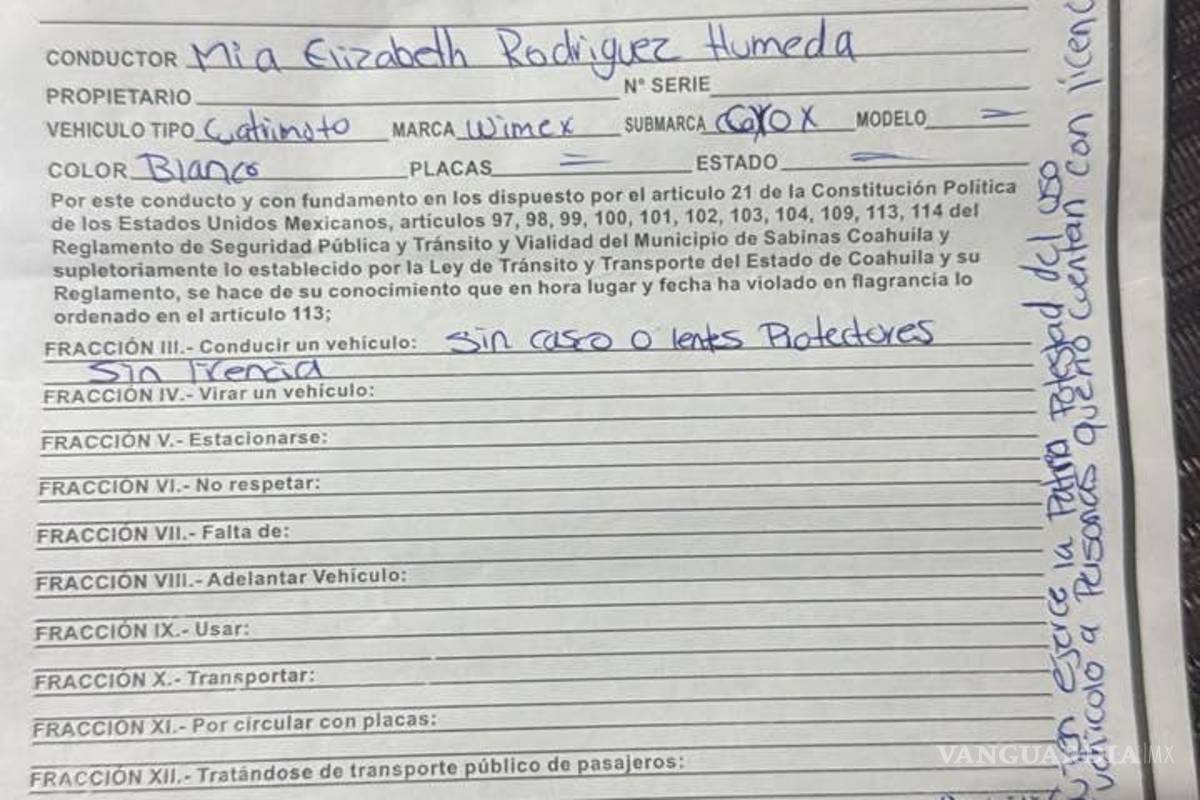 CONDUCTOR Mia Elizabeth Rodriguez Humeda
PROPIETARIO N° SERIE
VEHICULO TIPO Catrimoto MARCA Wimex SUBMARCA MODELO =
COLOR Blanco PLACAS = ESTADO =
Por este conducto y con fundamento en los dispuesto por el articulo 21 de la Constitución Política
de los Estados Unidos Mexicanos, artículos 97, 98, 99, 100, 101, 102, 103, 104, 109, 113, 114 del
Reglamento de Seguridad Pública y Tránsito y Vialidad del Municipio de Sabinas Coahuila y
supletoriamente lo establecido por la Ley de Tránsito y Transporte del Estado de Coahuila y su
Reglamento, se hace de su conocimiento que en hora lugar y fecha ha violado en flagrancia lo
ordenado en el artículo 113;
FRACCIÓN III.- Conducir un vehículo: Sin casco o lentes Protectores
Sin licencia
FRACCIÓN IV.- Virar un vehículo:
FRACCIÓN V.- Estacionarse:
FRACCIÓN VI.- No respetar:
FRACCIÓN VII.- Falta de:
FRACCIÓN VIII.- Adelantar Vehículo:
FRACCIÓN IX.- Usar:
FRACCIÓN X.- Transportar:
FRACCIÓN XI.- Por circular con placas:
FRACCIÓN XII.- Tratándose de transporte público de pasajeros:
ejerce la Patria Potestad del uso
vehiculo a Personas que no cuentan con licenc
VANGUARDIA|MX